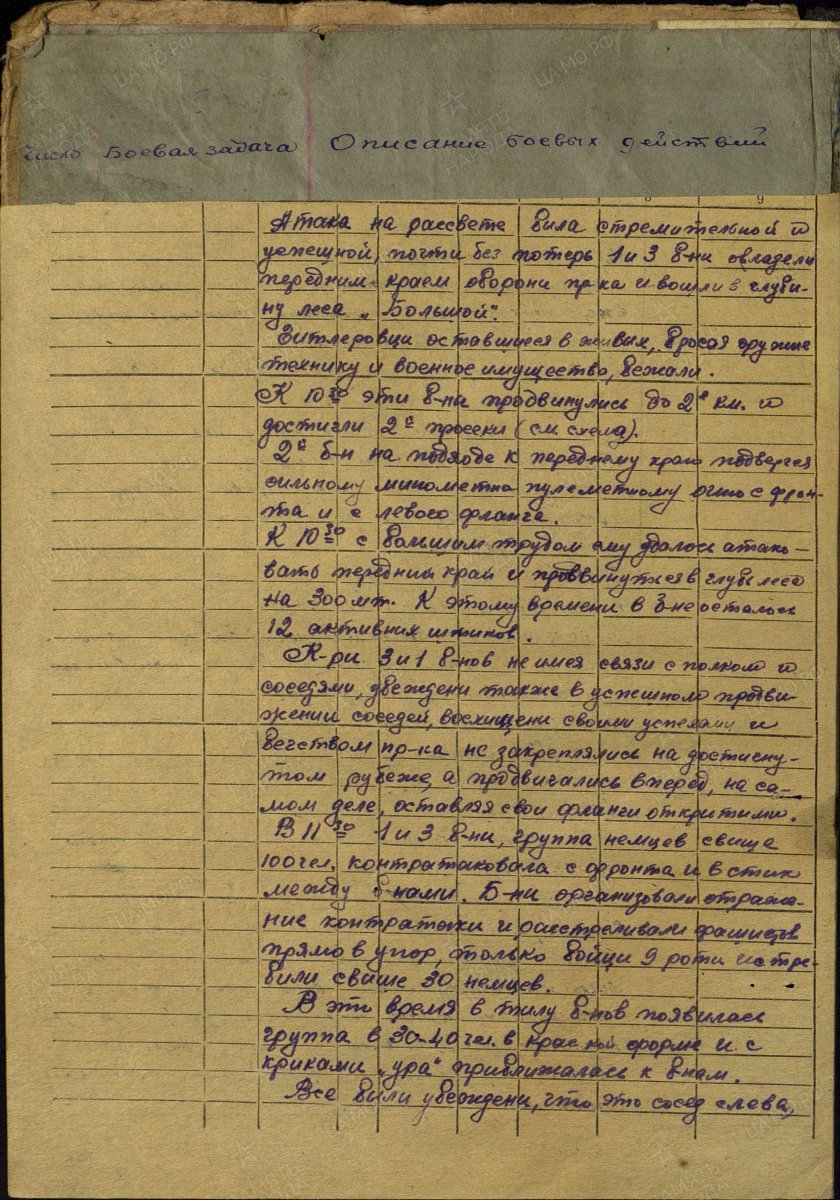 Число Боевая задача Описание боевых действий
9
Атака на рассвете била стремительной и
успешной, почти без потерь 1 и 3 б-ни овладели
передним краем оборони пр-ка и вошли в глуби-
ну леса „Большой“.
Гитлеровци оставшиеся в живих, бросая оружие
технику и военное имущество, бежали.
К 10 30 эти б-ни продвинулись до 2х км. и
достигли 2й просеки (см. схема).
2й б-н на подходе к переднему краю подвергся
сильному минометно пулеметному огню с фрон-
та и с левого фланга.
К 10 30 с большим трудом ему удалось атако-
вать передний край и продвинуться в глубь леса
на 300 мт. К этому времени в б-не осталось
12 активних штиков.
К-ри 3 и 1 б-нов не имея связи с полком и
соседями, убеждени также в успешном продви-
жении соседей, восхищени своими успехами и
бегством пр-ка не закреплялись на достигну-
том рубеже, а продвигались вперед, на са-
мом деле, оставляя свои фланги откритими.
В 11 30 1 и 3 б-ни, группа немцев свише
100 чел. контратаковала с фронта и в стик
между б-нами. Б-ни организовали отраже-
ние контратаки и расстреливали фашистов
прямо в упор, только бойци 9 роти истре-
били свише 30 немцев.
В это время в тилу б-нов появилась
группа в 30-40 чел. в красной форме и с
криками „ура“ приближалась к б-нам.
Все били убеждени, что это сосед слева,